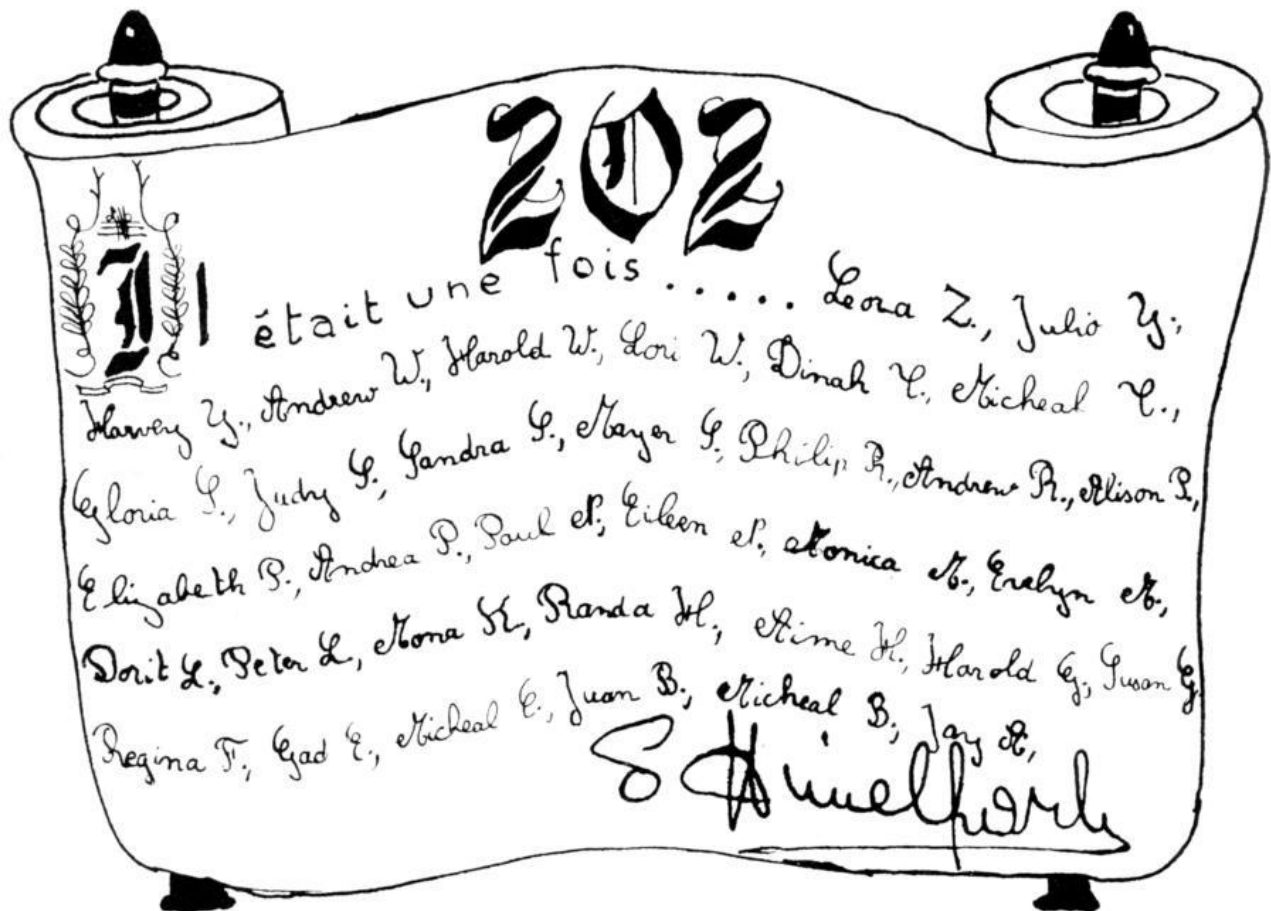 202
Il était une fois ..... Leora Z., Julio Y.,
Harvey Y., Andrew W., Harold W., Lori W., Dinah T., Micheal T.,
Gloria S., Judy S., Sandra S., Mayer S., Philip R., Andrew R., Alison P.,
Elizabeth P., Andrea P., Paul N., Eileen N., Monica M., Evelyn M.,
Dorit L., Peter L., Mona K., Randa H., Aime H., Harold G., Susan G.
Regina F., Gad E., Micheal E., Juan B., Micheal B., Jay A.,